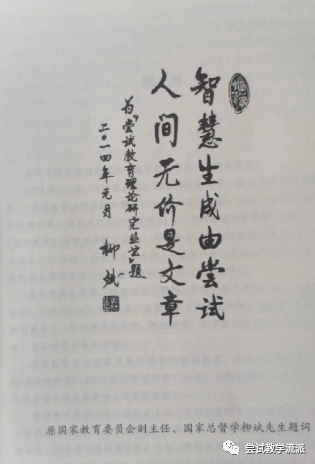 智慧生成由尝试
人间无价是文章
为《尝试教育理论研究丛书》题
二〇一四年元月 柳斌
原国家教育委员会副主任、国家总督学柳斌先生题词
尝试教学流派